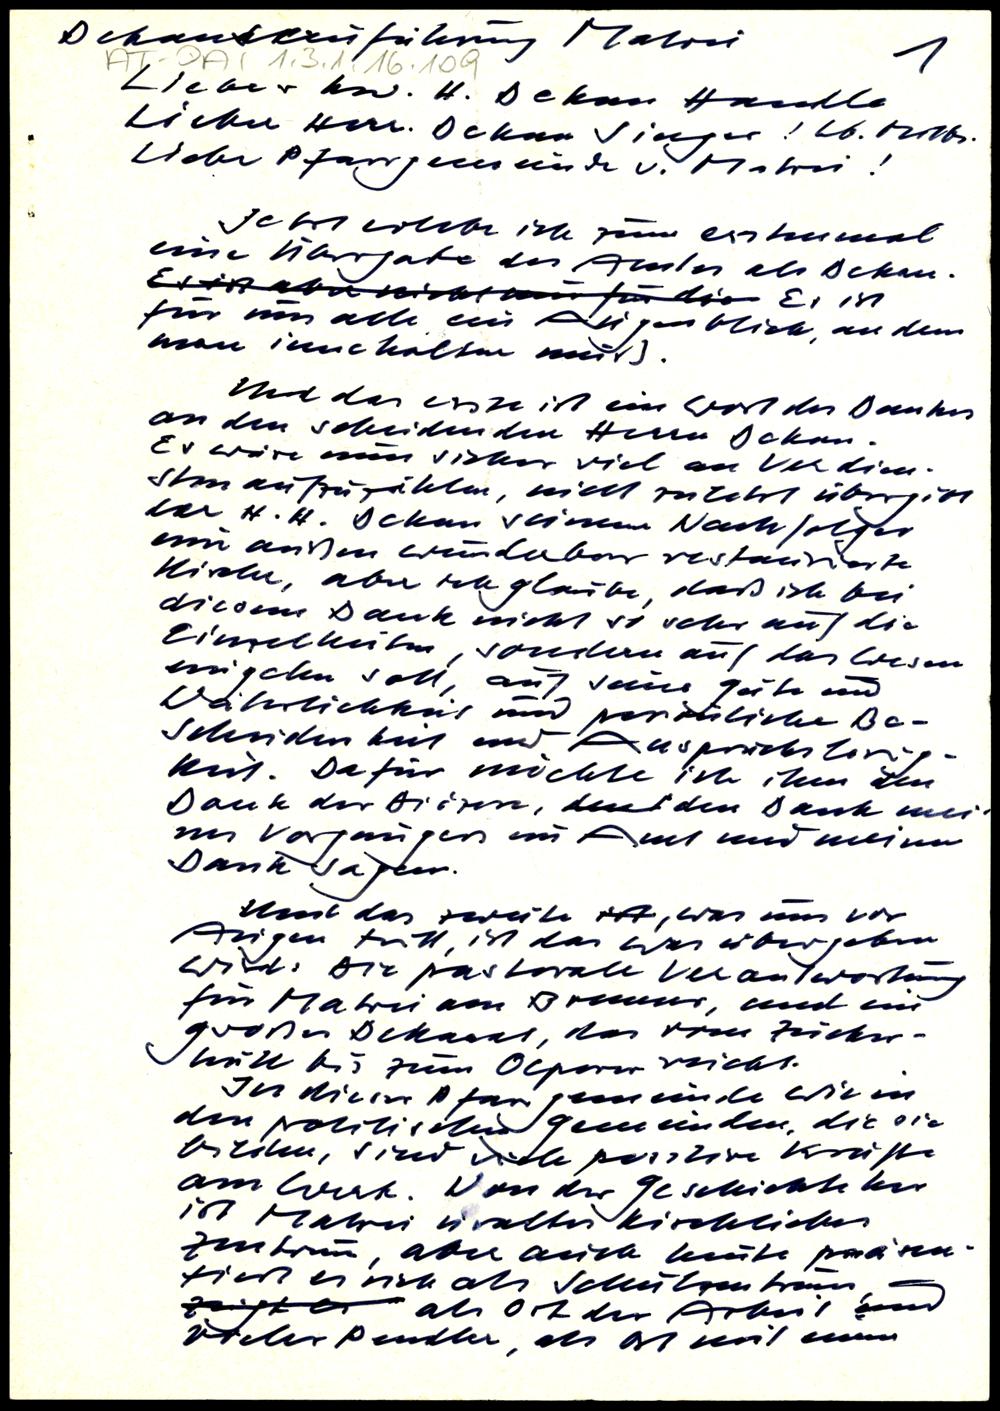 Dekanseinführung Matrei
1
AT-DAI 1.3.1.16.109
Lieber hw. H. Dekan Handle
Lieber Herr. Dekan Singer! Lb. Mitbr.
Liebe Pfarrgemeinde v. Matrei!
Jetzt erlebe ich zum erstenmal
eine Übergabe des Amtes als Dekan.
Es ist aber nicht nur für die Es ist
für uns alle ein Augenblick, an dem
man innehalten muß.
Und das erste ist ein Wort des Dankes
an den scheidenden Herrn Dekan.
Es wäre nun sicher viel an Verdien-
sten aufzuzählen, nicht zuletzt übergibt
der H.H. Dekan seinem Nachfolger
eine außen wunderbar restaurierte
Kirche, aber ich glaube, daß ich bei
diesem Dank nicht so sehr auf die
Einzelheiten, sondern auf das Wesen
eingehen soll, auf seine Güte und
Väterlichkeit und persönliche Be-
scheidenheit und Anspruchslosig-
keit. Dafür möchte ich ihm den
Dank der Diözese, den Dank mei-
nes Vorgängers im Amt und meinen
Dank sagen.
Und das zweite ist, was uns vor
Augen tritt, ist das was übergeben
wird: Die pastorale Verantwortung
für Matrei am Brenner, und ein
großes Dekanat, das vom Zucker-
hütl bis zum Olperer reicht.
In dieser Pfarrgemeinde wie in
den politischen Gemeinden, die sie
bilden, sind viele positive Kräfte
am Werk. Von der Geschichte her
ist Matrei uraltes kirchliches
Zentrum, aber auch heute präsen-
tiert es sich als Schulzentrum
zeigt es als Ort der Arbeit und
vieler Pendler, als Ort mit einem